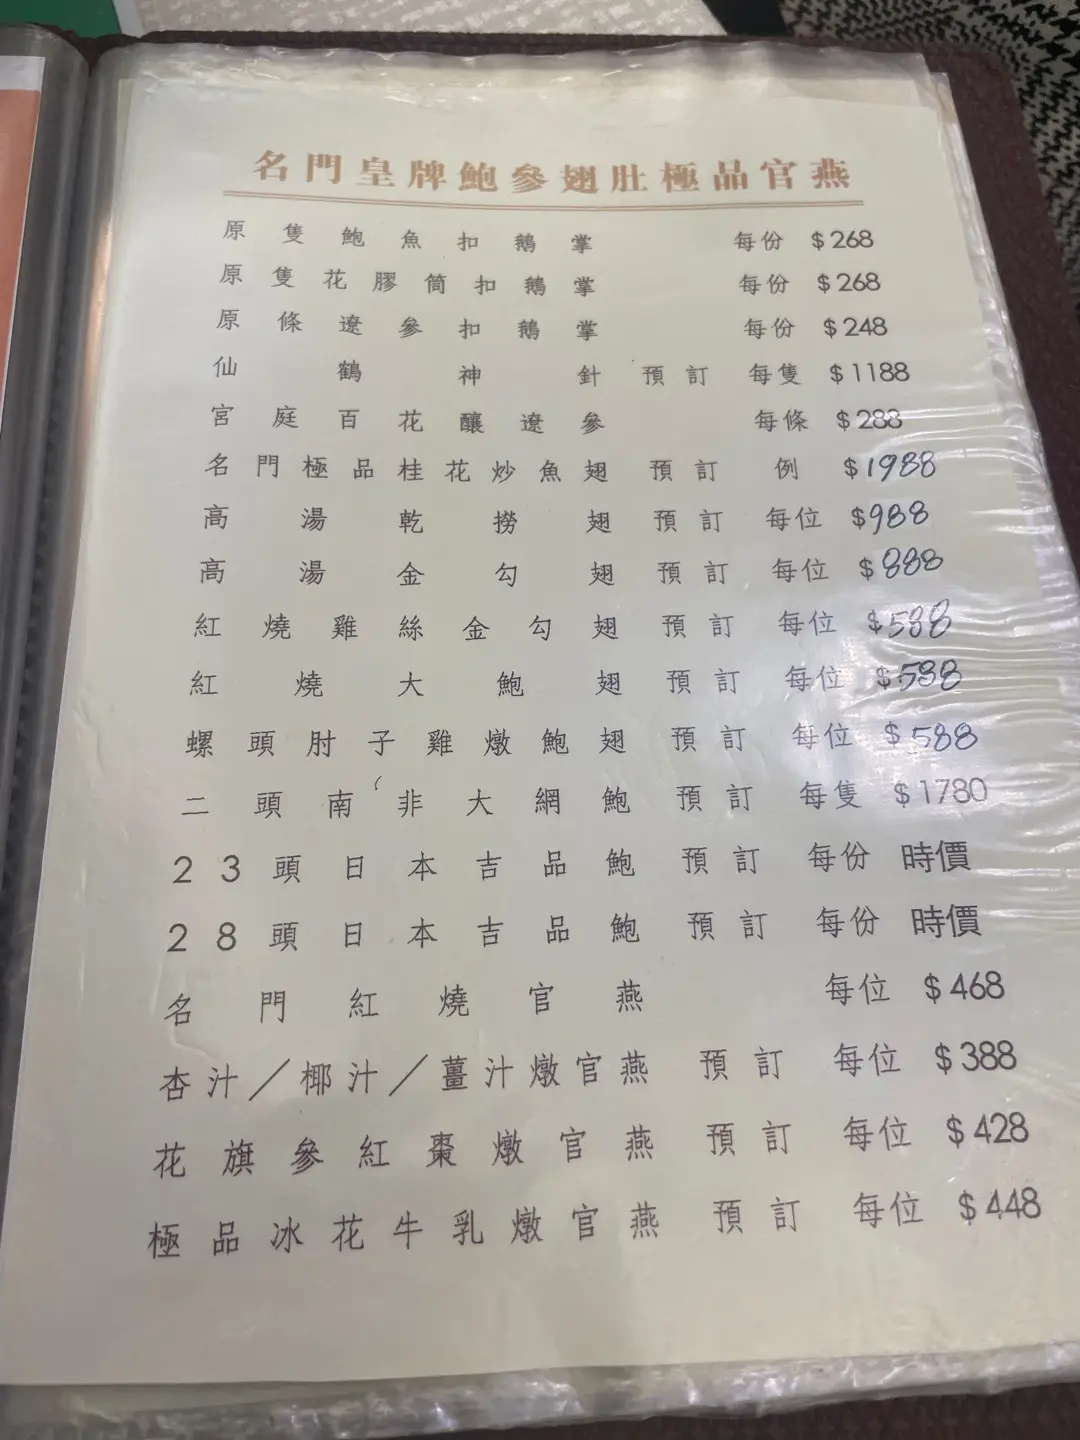 名門皇牌鮑參翅肚極品官燕
原隻鮑魚扣鵝掌 每份 $268
原隻花膠筒扣鵝掌 每份 $268
原條遼參扣鵝掌 每份 $248
仙鶴神針 預訂 每隻 $1188
宮庭百花釀遼參 每條 $288
名門極品桂花炒魚翅 預訂 例 $1988
高湯乾撈翅 預訂 每位 $988
高湯金勾翅 預訂 每位 $888
紅燒雞絲金勾翅 預訂 每位 $588
紅燒大鮑翅 預訂 每位 $588
螺頭肘子雞燉鮑翅 預訂 每位 $588
二頭南非大網鮑 預訂 每隻 $1780
23頭日本吉品鮑 預訂 每份 時價
28頭日本吉品鮑 預訂 每份 時價
名門紅燒官燕 每位 $468
杏汁／椰汁／薑汁燉官燕 預訂 每位 $388
花旗參紅棗燉官燕 預訂 每位 $428
極品冰花牛乳燉官燕 預訂 每位 $448